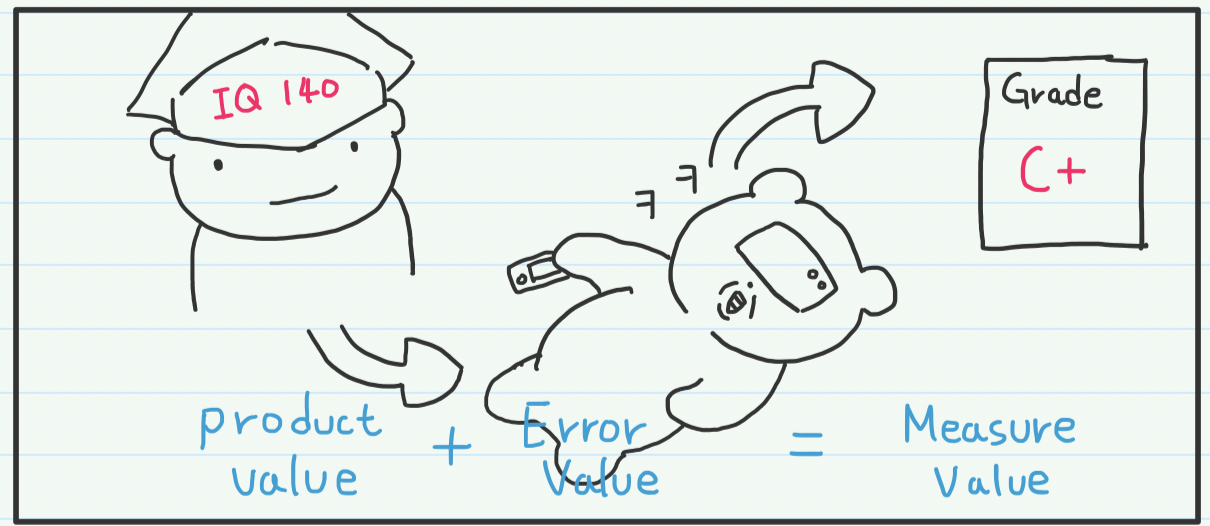 IQ 140
ㅋㅋ
Grade
C+
product
value
+
Error
Value
=
Measure
Value